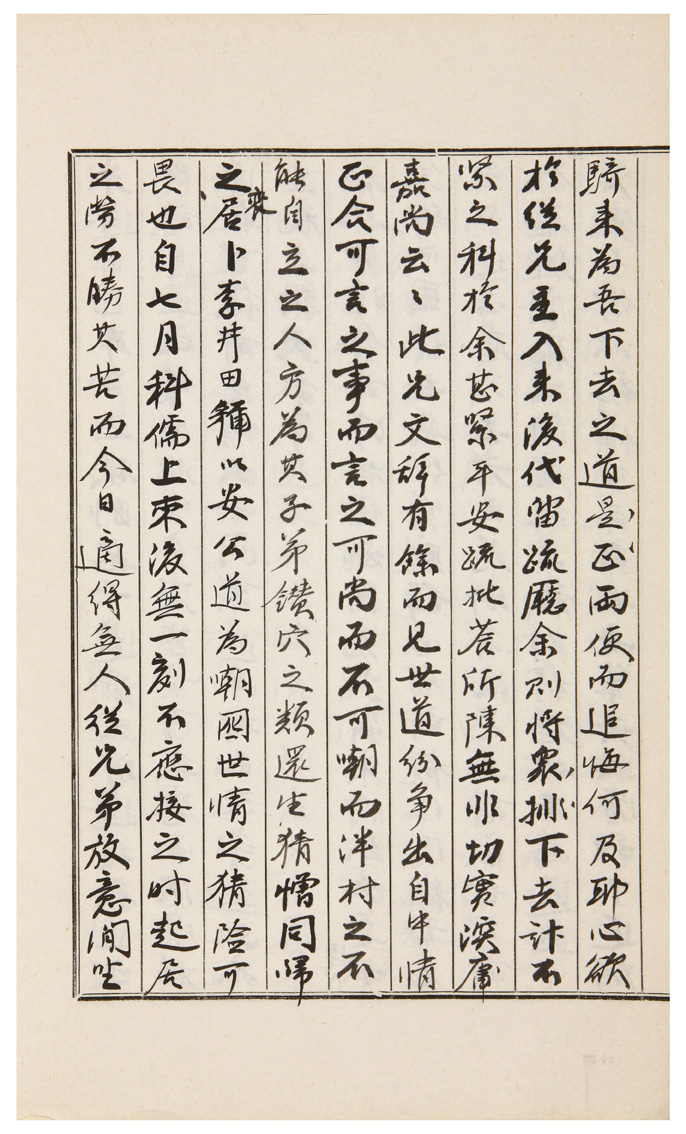 騎來為吾下去之道是〻正〻兩便而追悔何及耶心欲
於從兄主入來後代留疏廳余則將衆〻排〻下去計不
緊之科於余甚緊平安疏批荅所陳無非切實深庸
嘉尚云〻此兄文辞有餘而見世道紛争出自中情
正合可言之事而言之可尚而不可嘲而泮村之不
能自立之人方為其子弟鑚穴之類還生猜憎同歸
之居卜李井田稱以安公道為嘲國世情之猜險可
畏也自七月科儒上來後無一刻不應接之時起居
之勞不勝其苦而今日適得無人從兄弟放意閒坐